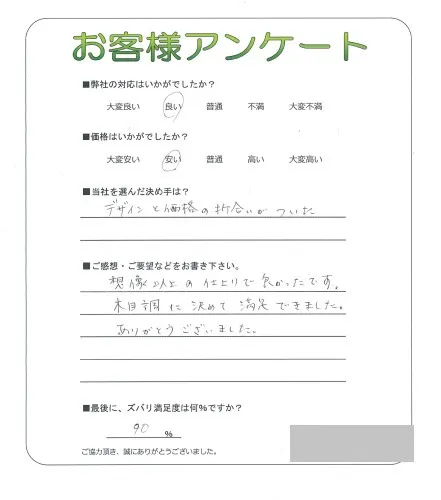 お客様アンケート
■弊社の対応はいかがでしたか?
大変良い 良い 普通 不満 大変不満
■価格はいかがでしたか?
大変安い 安い 普通 高い 大変高い
■当社を選んだ決め手は?
デザインと価格の折合いがついた
■ご感想・ご要望などをお書き下さい。
想像以上の仕上りで良かったです。
木目調に決めて満足できました。
ありがとうございました。
■最後に、ズバリ満足度は何%ですか?
90 %
ご協力頂き、誠にありがとうございました。